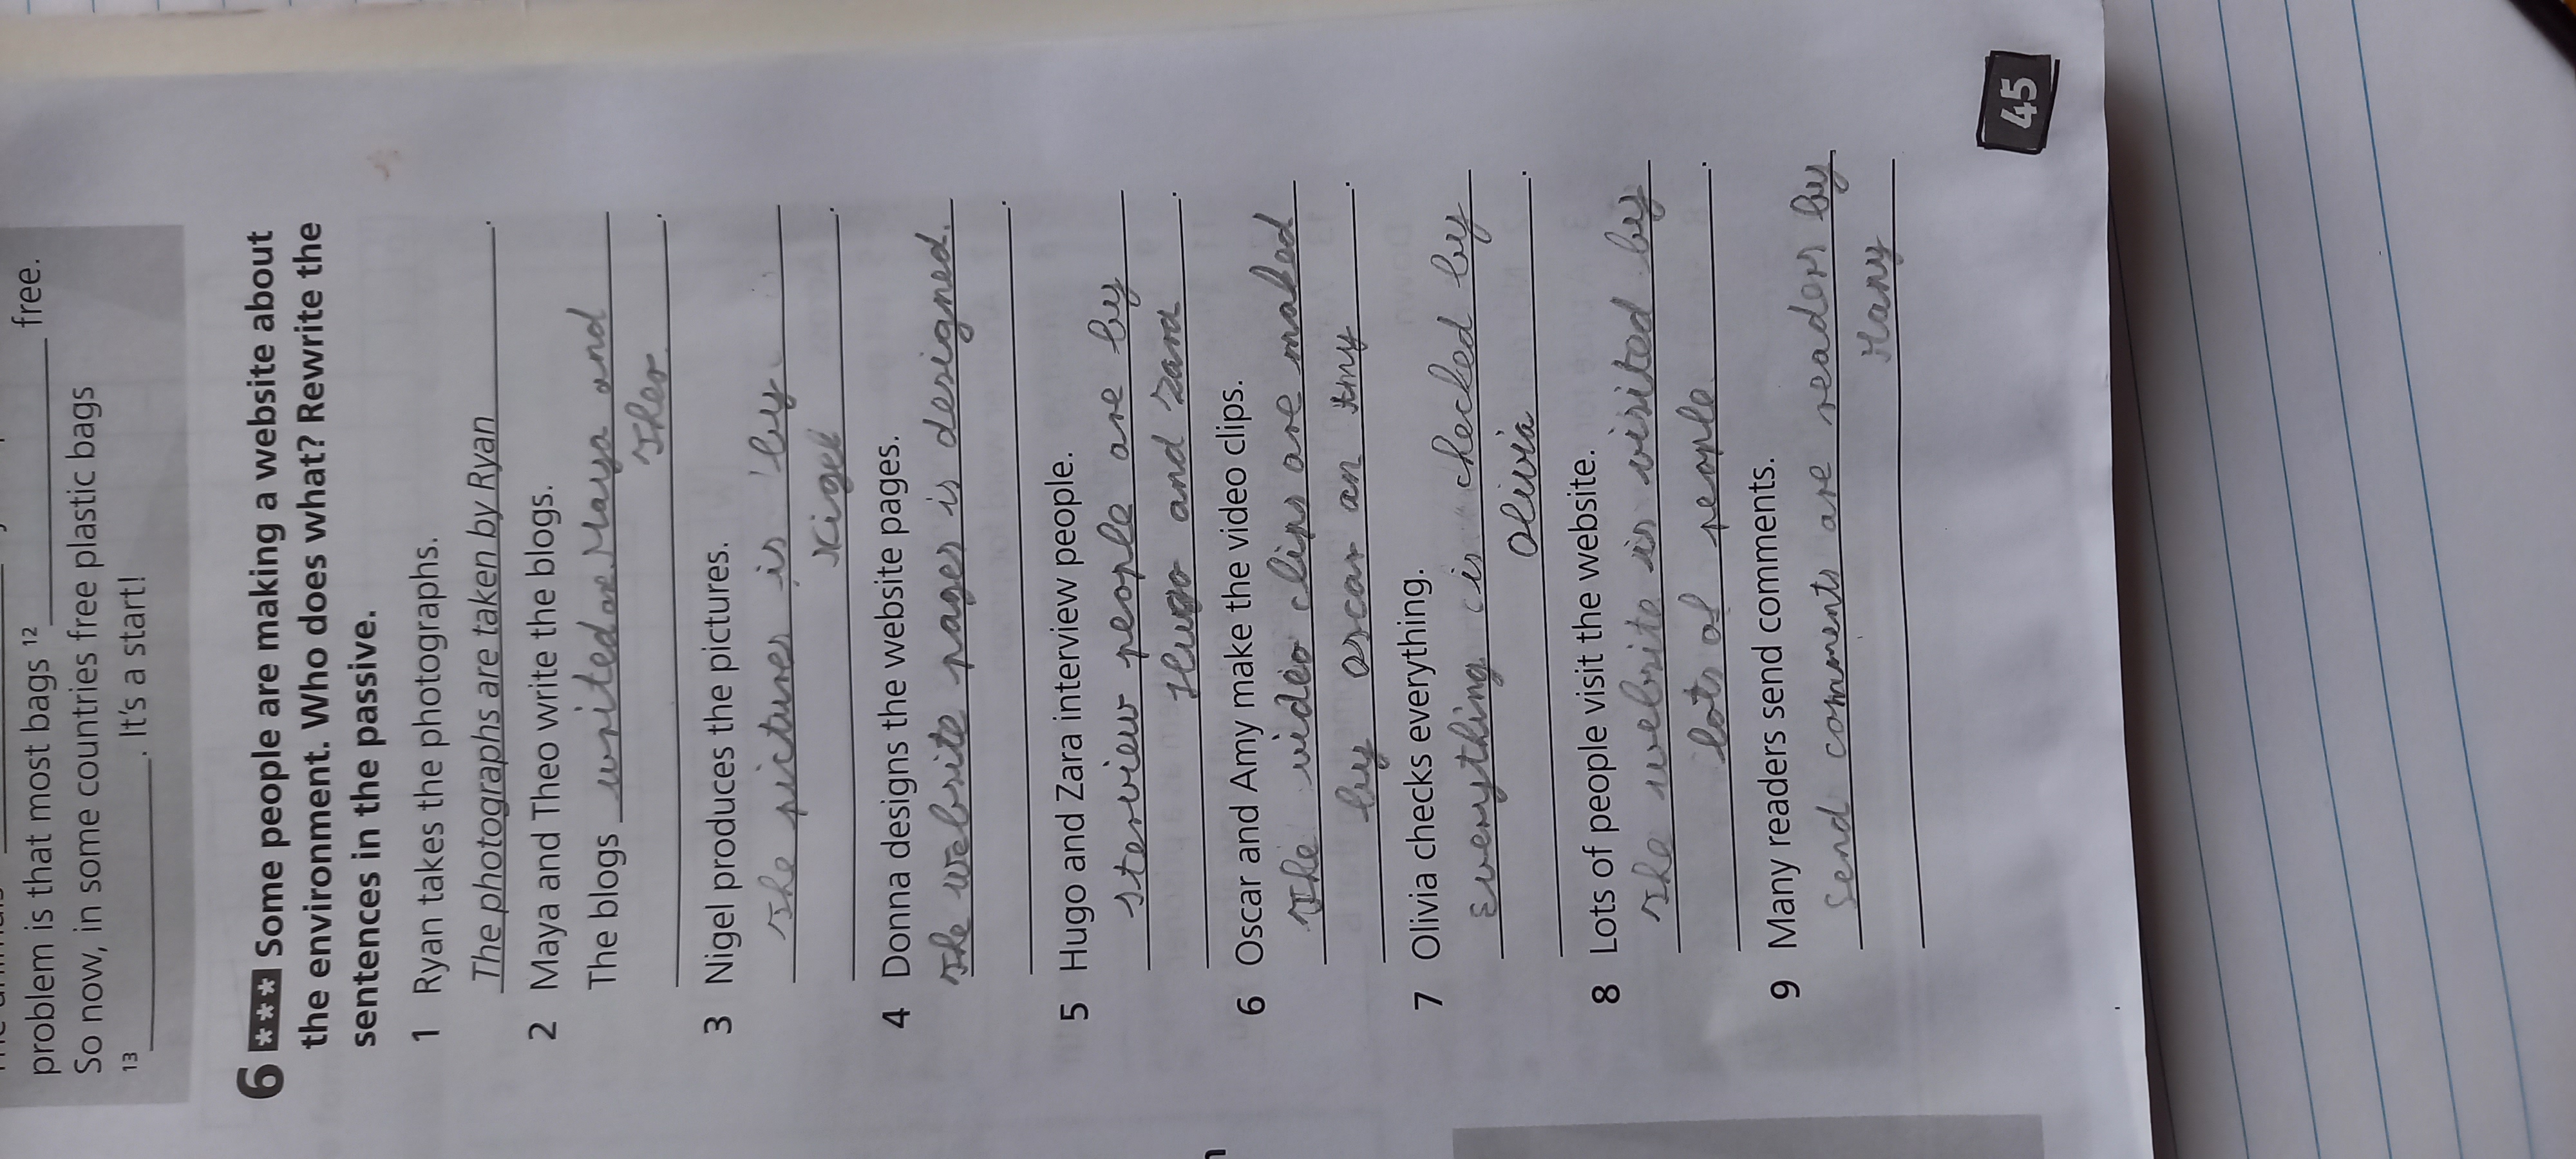 problem is that most bags 12 ____________ free.
So now, in some countries free plastic bags
13 ____________. It's a start!
6 *** Some people are making a website about
the environment. Who does what? Rewrite the
sentences in the passive.
1 Ryan takes the photographs.
The photographs are taken by Ryan.
2 Maya and Theo write the blogs.
The blogs writed are Maya and
Theo.
3 Nigel produces the pictures.
The pictures is by
Nigel.
4 Donna designs the website pages.
The website pages is designed.
5 Hugo and Zara interview people.
sterview people are by
Hugo and Zara.
6 Oscar and Amy make the video clips.
The video clips are maked
by oscar an Amy.
7 Olivia checks everything.
Everything is checked by
Olivia.
8 Lots of people visit the website.
The website is visited by
lots of people.
9 Many readers send comments.
Send comments are readors by
Many
45